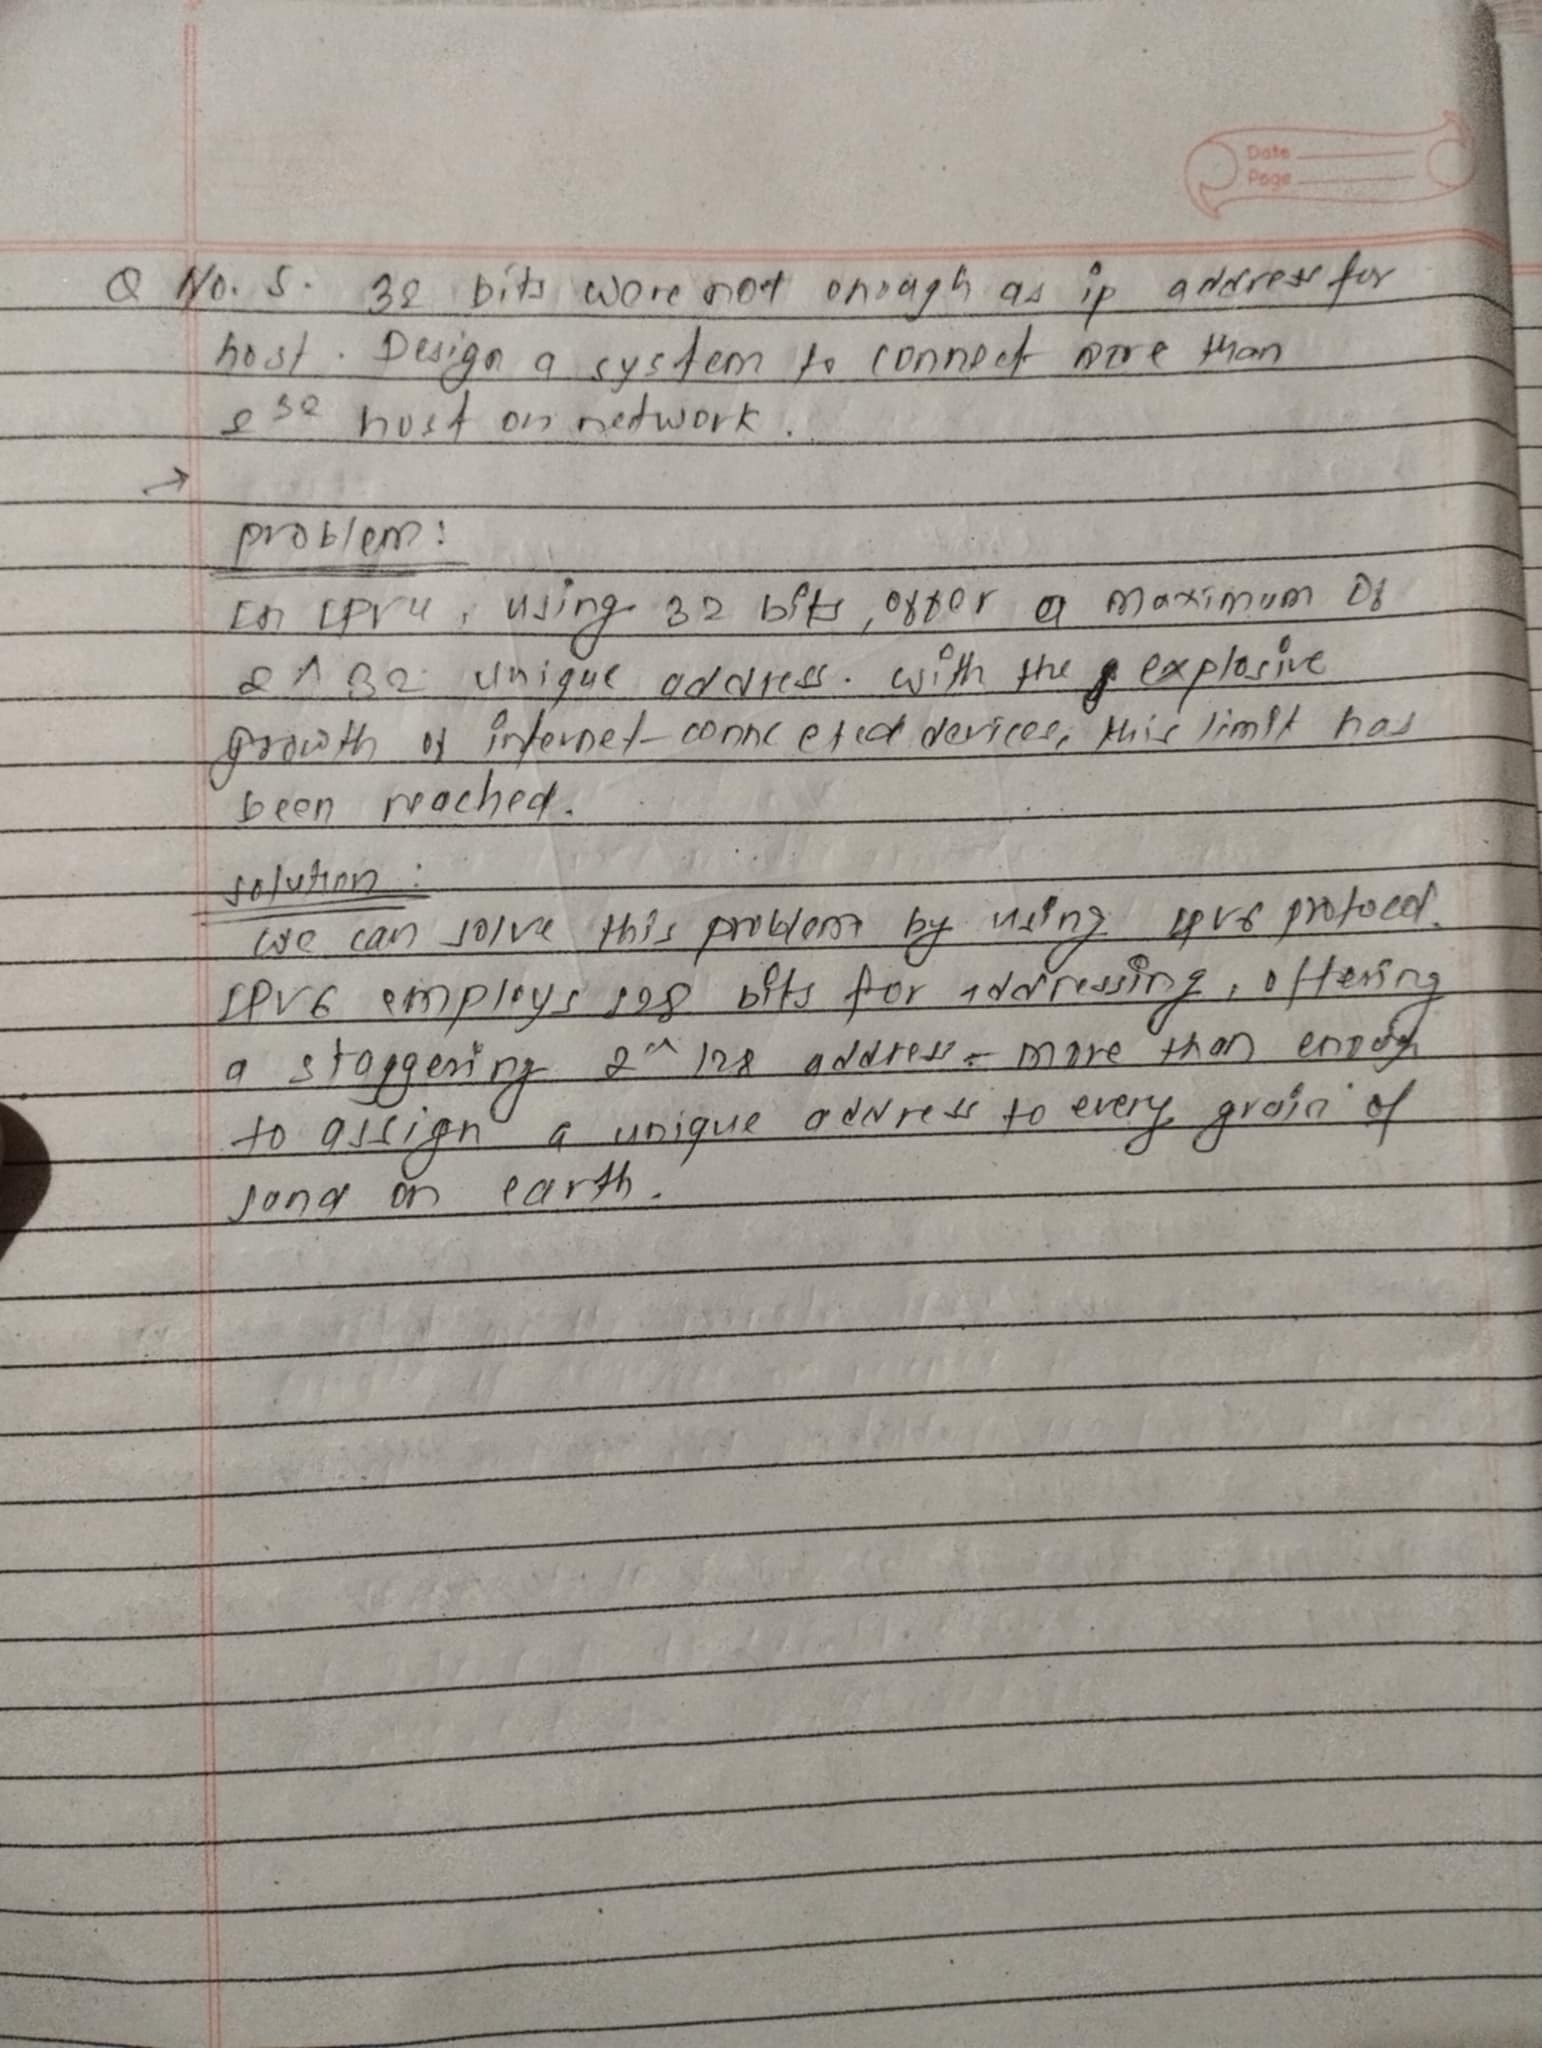 Date
Page
Q No. 5. 32 bits were not enough as ip address for
host. Design a system to connect more than
2^32 host on network.
→
problem:
In IPv4, using 32 bits, offer a maximum of
2^32 unique address. with the explosive
growth of internet-connected devices, this limit has
been reached.
solution:
we can solve this problem by using IPv6 protocol.
IPv6 employs 128 bits for addressing, offering
a staggering 2^128 address - more than enough
to assign a unique address to every grain of
sand on earth.